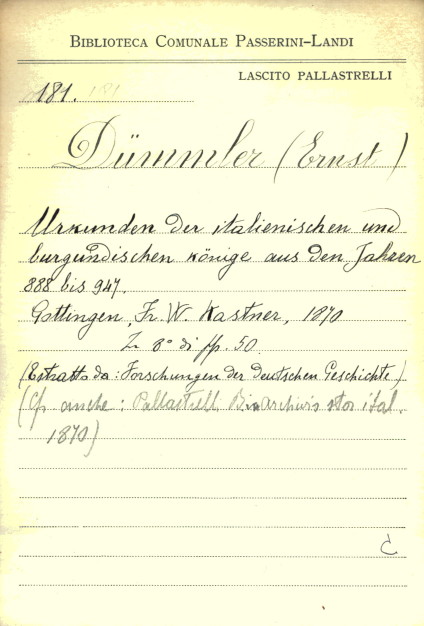 BIBLIOTECA COMUNALE PASSERINI-LANDI
LASCITO PALLASTRELLI
181. 181
Dümmler (Ernst)
Urkunden der italienischen und
burgundischen könige aus den Jahren
888 bis 947.
Gottingen, Fr. W. Kastner, 1870
8° di pp. 50.
(Estratto da: Forschungen der deutschen Geschichte)
(Cf. anche: Pallastrelli B. in archivio stor. ital.
1870)
C